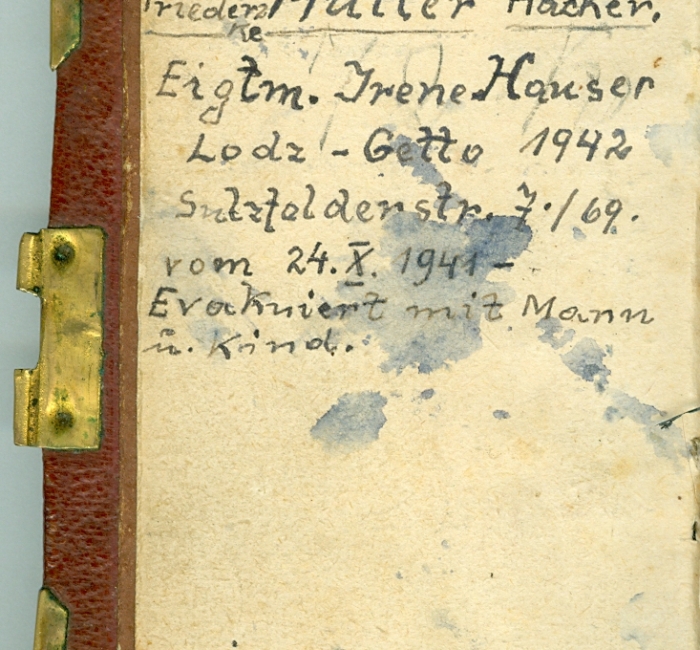 Müller Hacker.
ke
Eigtm. Irene Hauser
Lodz - Getto 1942
Sulzfelderstr. 7./69.
vom 24.X. 1941 -
Evakuiert mit Mann
u. Kind.